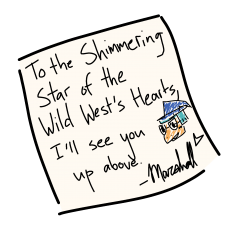 To the Shimmering
Star of the
Wild West's Hearts,
I'll see you
up above.
-Marshall